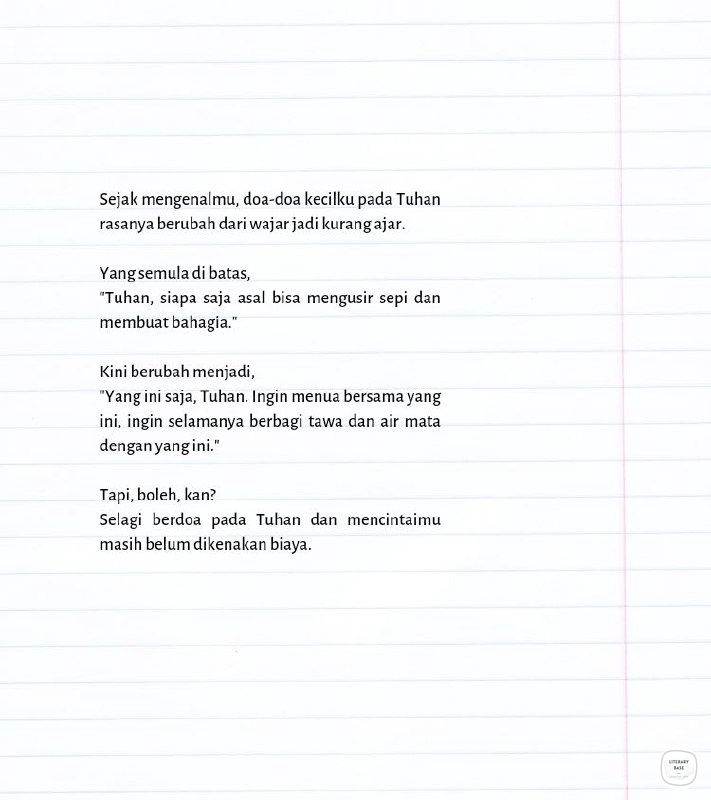 Sejak mengenalmu, doa-doa kecilku pada Tuhan
rasanya berubah dari wajar jadi kurang ajar.
Yang semula di batas,
"Tuhan, siapa saja asal bisa mengusir sepi dan
membuat bahagia."
Kini berubah menjadi,
"Yang ini saja, Tuhan. Ingin menua bersama yang
ini, ingin selamanya berbagi tawa dan air mata
dengan yang ini."
Tapi, boleh, kan?
Selagi berdoa pada Tuhan dan mencintaimu
masih belum dikenakan biaya.
LITERARY
BASE